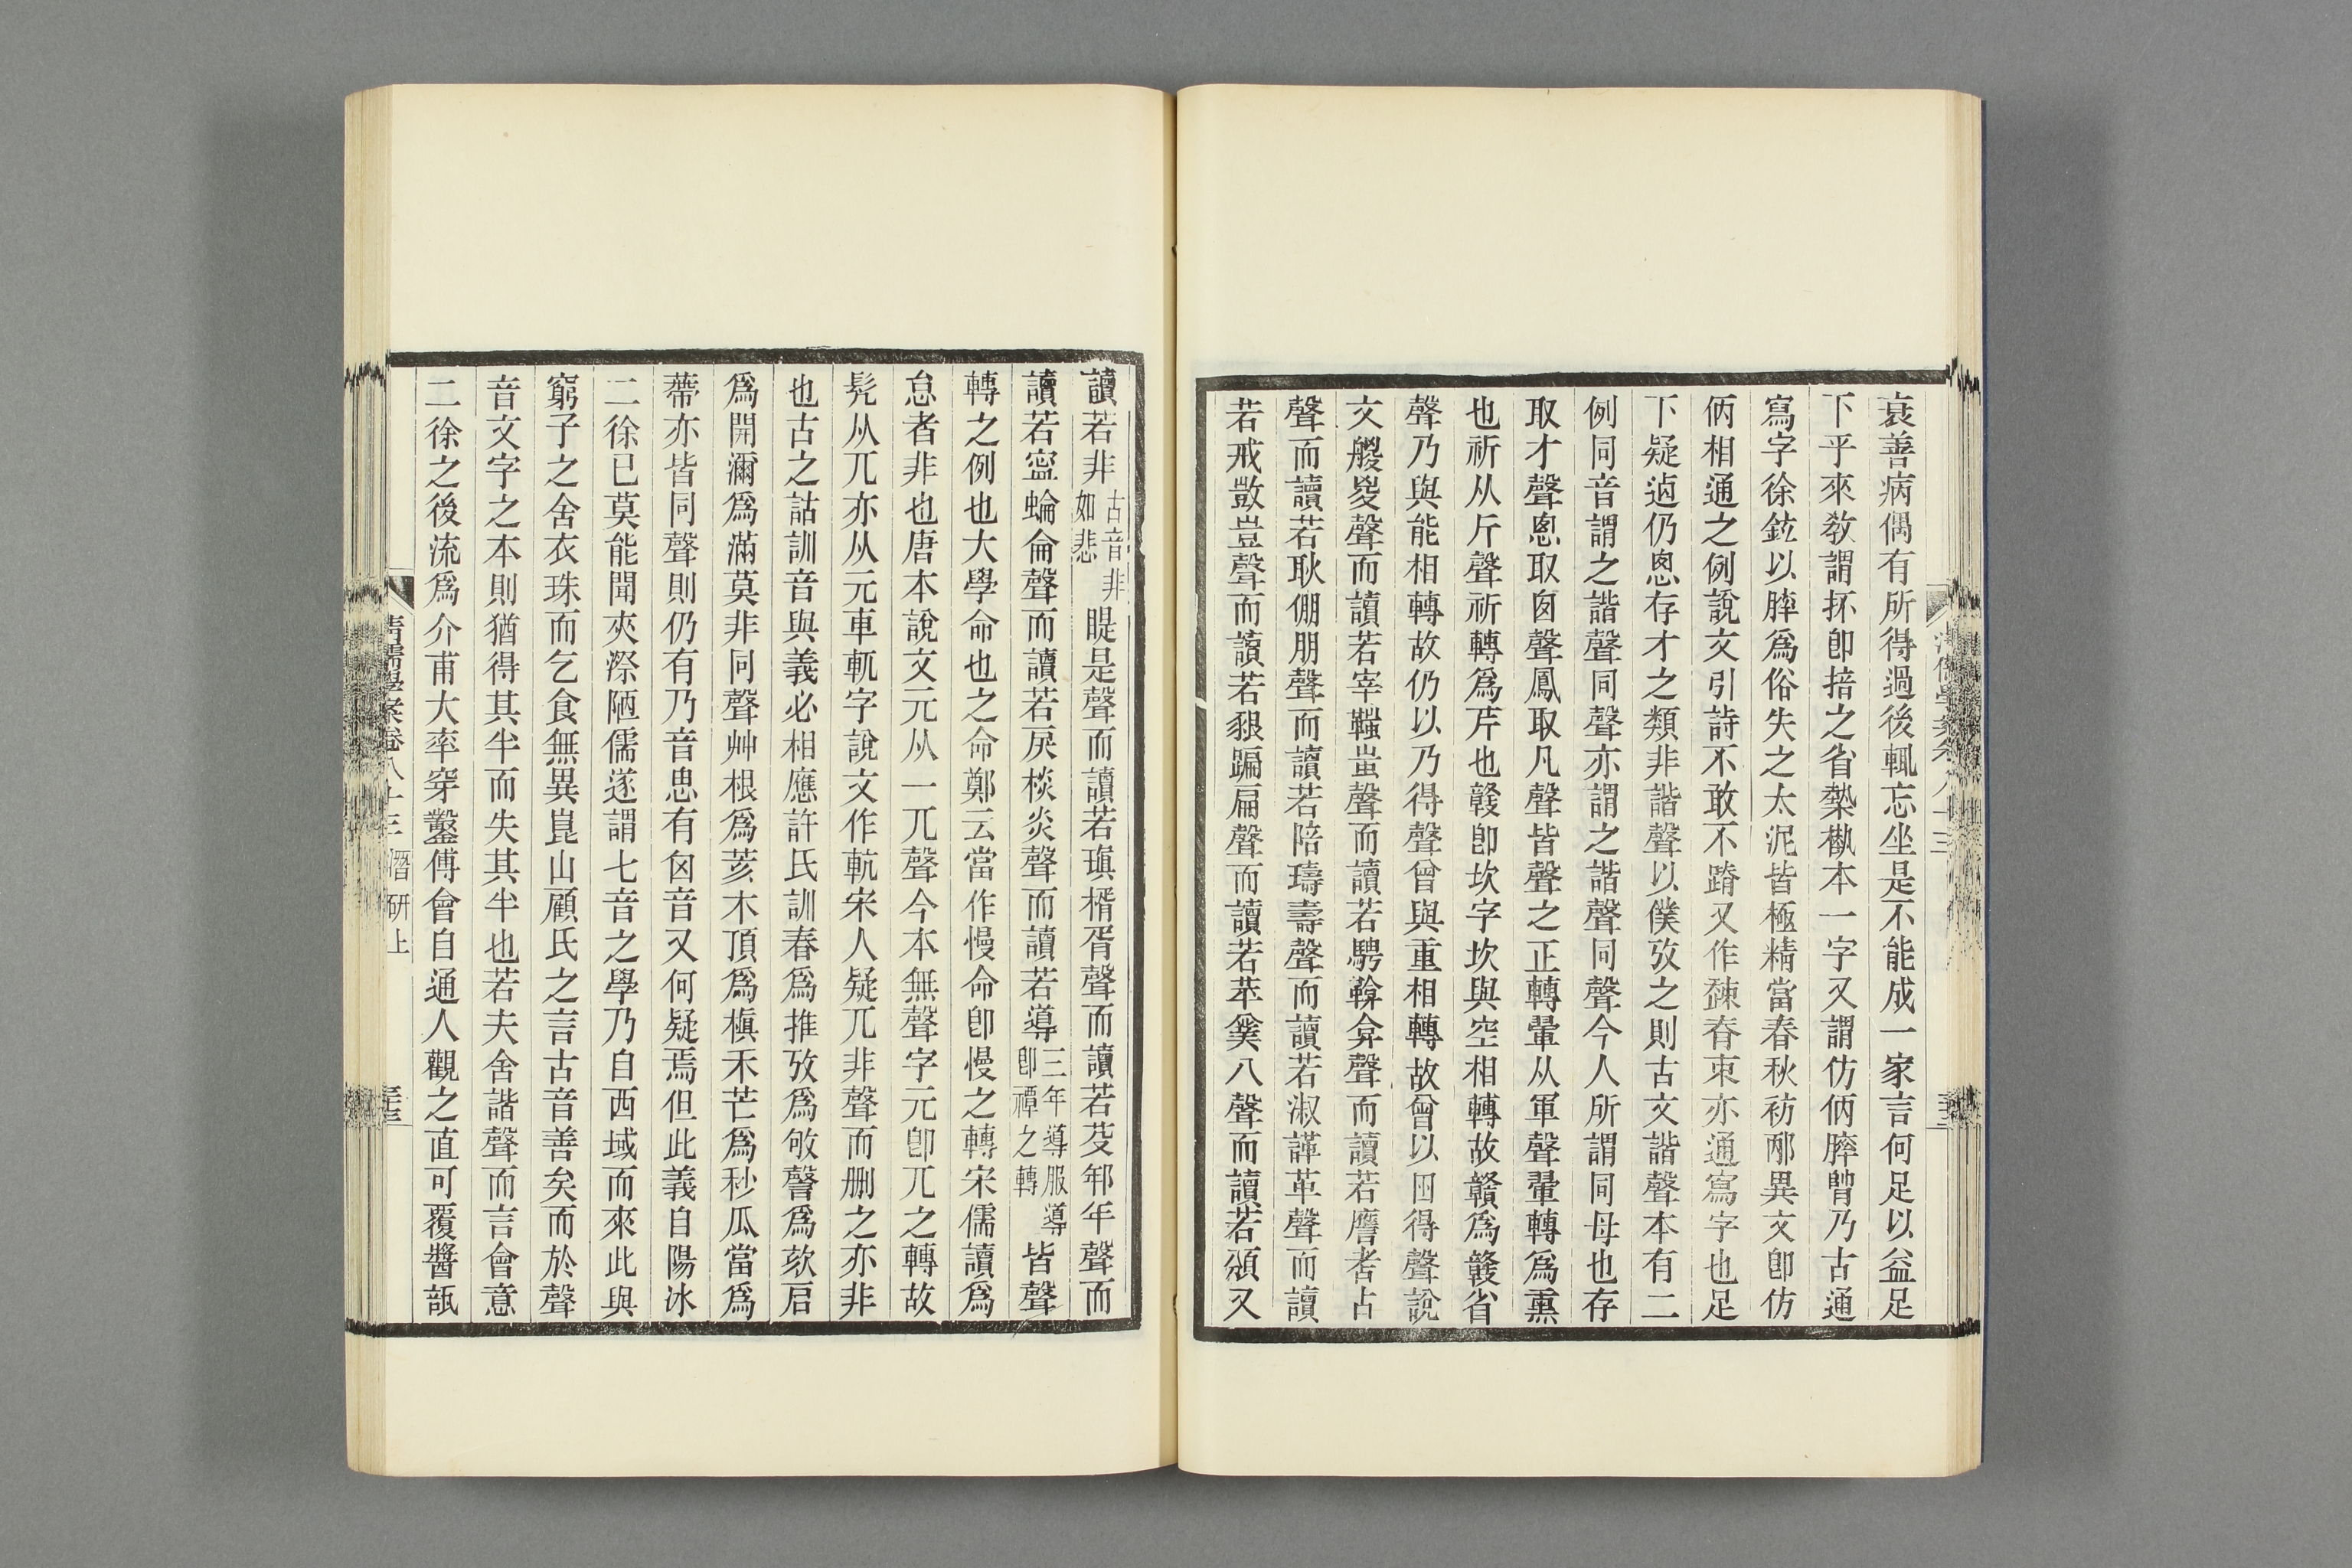 衰善病偶有所得過後輒忘坐是不能成一家言何足以益足
下乎來敎謂抔卽掊之省槷檝本一字又謂仿㑂膟膟乃古通
寫字徐鉉以膟爲俗失之太泥皆極精當春秋祊邴異文卽仿
㑂相通之例說文引詩不敢不蹐又作𧻓脊束亦通寫字也足
下疑迺仍恖存才之類非諧聲以僕攷之則古文諧聲本有二
例同音謂之諧聲同聲亦謂之諧聲同聲今人所謂同母也存
取才聲恖取囪聲鳳取凡聲皆聲之正轉暈从軍聲翬轉爲熏
也祈从斤聲祈轉爲芹也竷卽坎字坎與空相轉故贛爲竷省
聲乃與能相轉故仍以乃得聲曾與重相轉故曾以囪得聲說
文艐㚇聲而讀若宰𩌏蚩聲而讀若騁𩏑弇聲而讀若譍者占
聲而讀若耿倗朋聲而讀若陪璹壽聲而讀若淑諽革聲而讀
若戒敳豈聲而讀若豤蹁扁聲而讀若苹䑑八聲而讀若頒又
讀若非古音非如悲睼是聲而讀若瑱楈胥聲而讀若芟邾年聲而
讀若寍蜦侖聲而讀若戾棪炎聲而讀若導三年導服導卽禫之轉皆聲
轉之例也大學命也之命鄭云當作慢命卽慢之轉宋儒讀爲
怠者非也唐本說文元从一兀聲今本無聲字元卽兀之轉故
髡从兀亦从元車軏字說文作軏宋人疑兀非聲而刪之亦非
也古之詁訓音與義必相應許氏訓春爲推攷爲敂謦爲欬启
爲開濔爲滿莫非同聲艸根爲荄木頂爲槇禾芒爲秒瓜當爲
蔕亦皆同聲則仍有乃音恖有囪音又何疑焉但此義自陽冰
二徐已莫能聞夾漈陋儒遂謂七音之學乃自西域而來此與
窮子之舍衣珠而乞食無異崑山顧氏之言古音善矣而於聲
音文字之本則猶得其半而失其半也若夫舍諧聲而言會意
二徐之後流爲介甫大率穿鑿傅會自通人觀之直可覆醬瓿
清儒學案卷八十三 潛研上